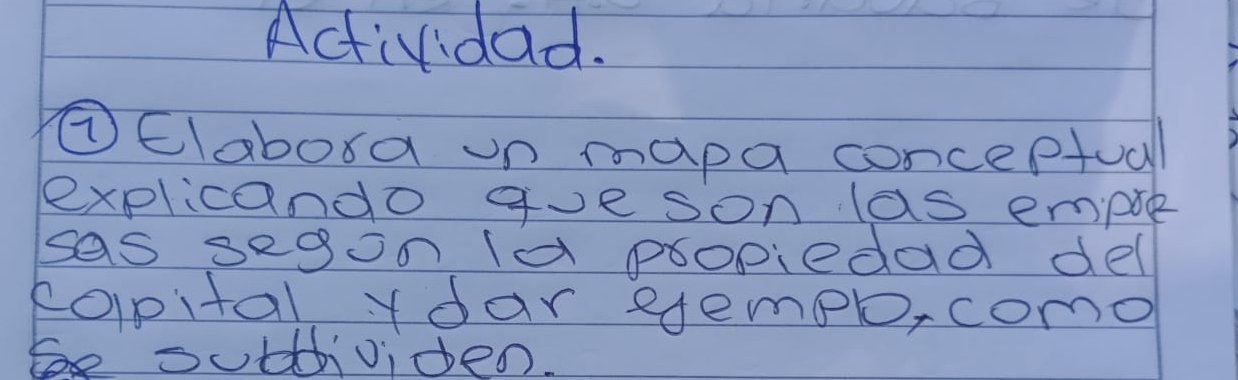 Actividad.
① Elabora un mapa conceptual
explicando que son las empre
sas segun la propiedad del
capital y dar ejemplo, como
se subdividen.